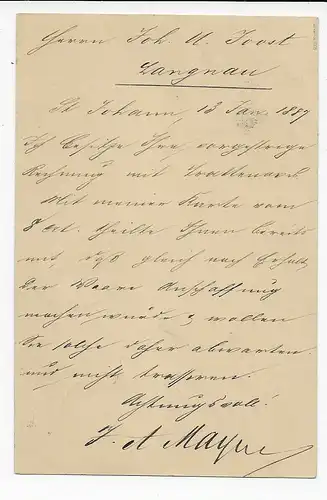 Herrn Joh. U. Joost
Langnau
St Johann, 13 Jan 1887
Ich besitze Ihre vorgestrige
Rechnung mit Tratten
Mit meiner Karte vom
8 ct. theilte Ihnen bereits
mit, daß gleich nach Erhalt
der Waare Anschaffung
machen würde & wollen
Sie solche daher abwarten
und nicht trassiren.
Achtungsvoll!
J. A Mayer